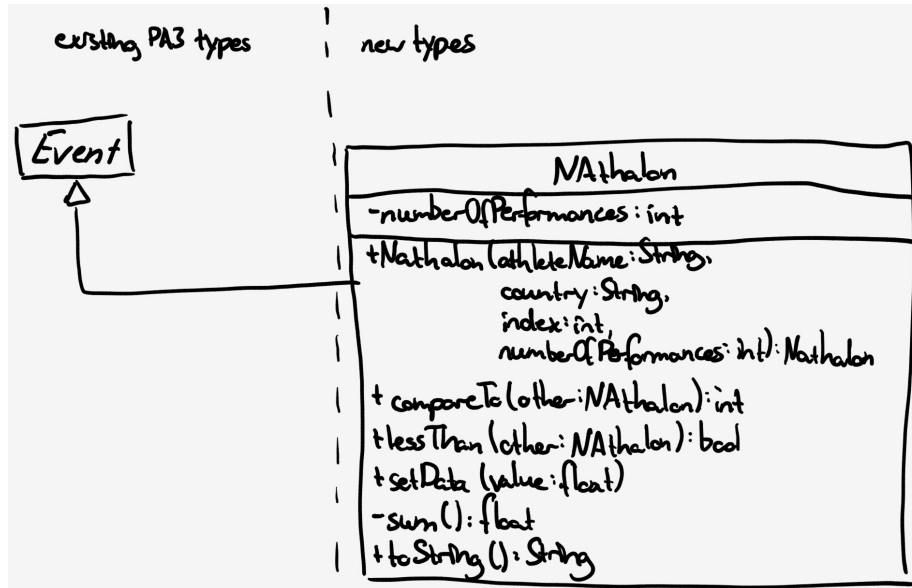 existing PA3 types
new types
Event
NAthalon
-numberOfPerformances: int
+Nathalon(athleteName: String,
country: String,
index: int,
numberOfPerformances: int): Nathalon
+ compareTo(other: NAthalon): int
+ lessThan(other: NAthalon): bool
+ setData (value: float)
- sum(): float
+ toString(): String